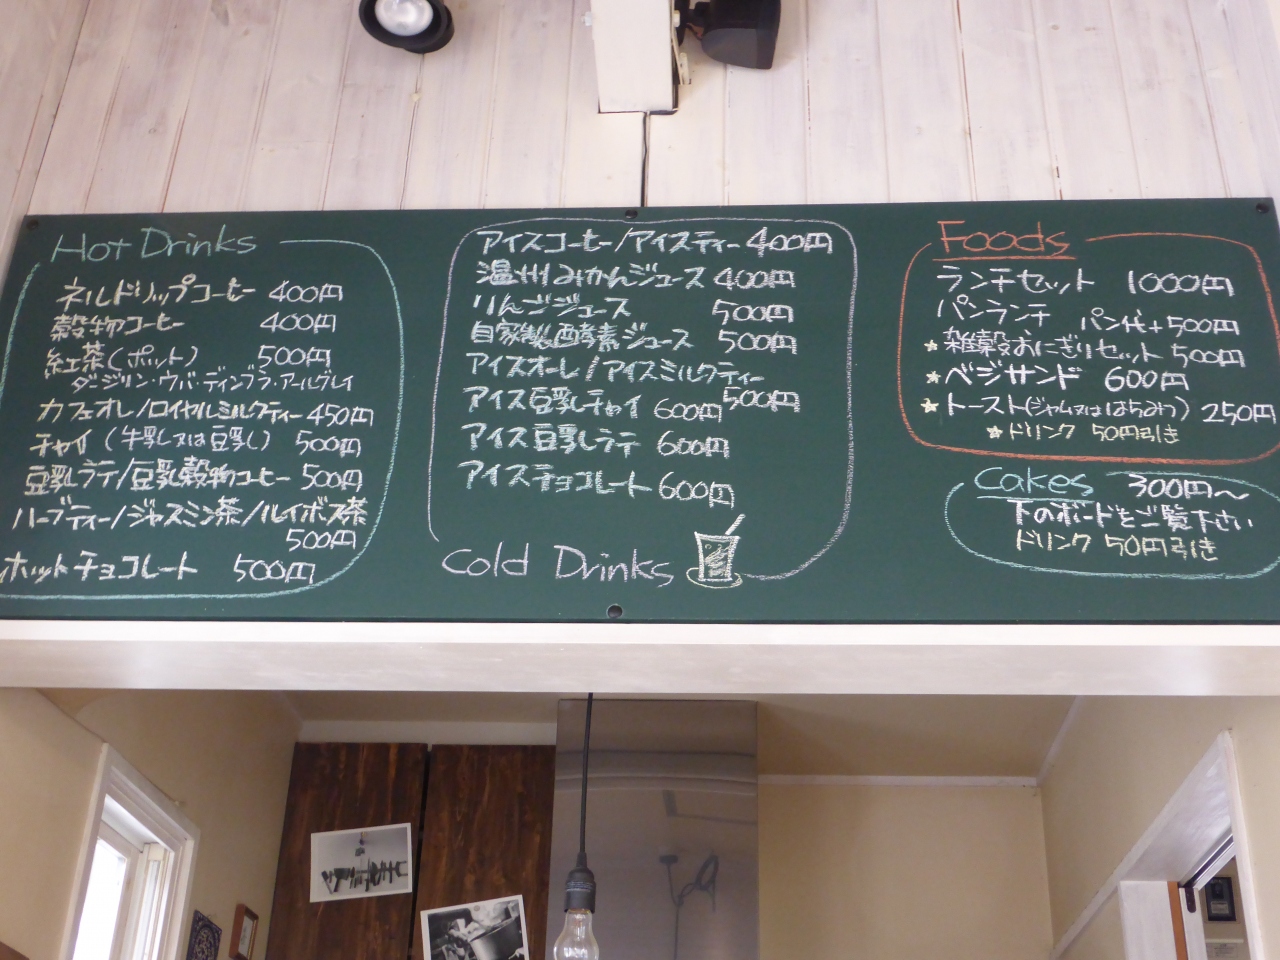 Hot Drinks
ネルドリップコーヒー 400円
穀物コーヒー 400円
紅茶(ポット) 500円
ダージリン・ウバ・ディンブラ・アールグレイ
カフェオレ/ロイヤルミルクティー 450円
チャイ(牛乳又は豆乳) 500円
豆乳ラテ/豆乳穀物コーヒー 500円
ハーブティー/ジャスミン茶/ルイボス茶
500円
ホットチョコレート 500円
アイスコーヒー/アイスティー 400円
温州みかんジュース 400円
りんごジュース 500円
自家製酵素ジュース 500円
アイスオーレ/アイスミルクティー
500円
アイス豆乳チャイ 600円
アイス豆乳ラテ 600円
アイスチョコレート 600円
Cold Drinks
Foods
ランチセット 1000円
パンランチ パン代+500円
★雑穀おにぎりセット 500円
★ベジサンド 600円
★トースト(ジャム又ははちみつ) 250円
★ドリンク 50円引き
Cakes 300円〜
下のボードをご覧下さい
ドリンク 50円引き